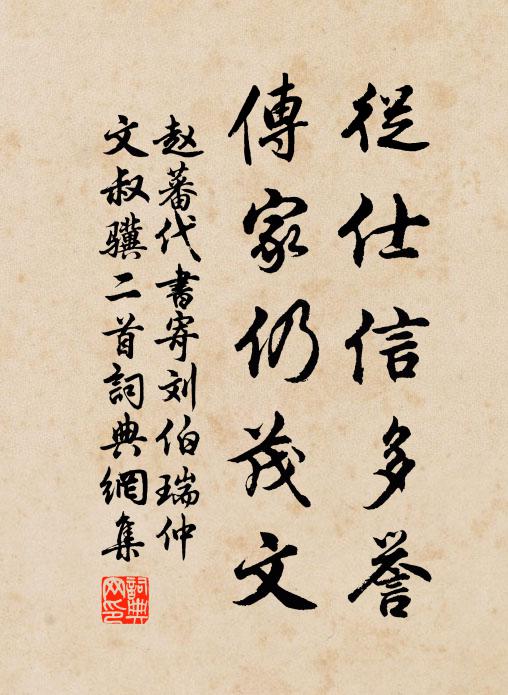 從仕信多譽
傳家仍茂文
赵蕃代書寄刘伯瑞仲
文叔骥二首詞典網集
詞典网印